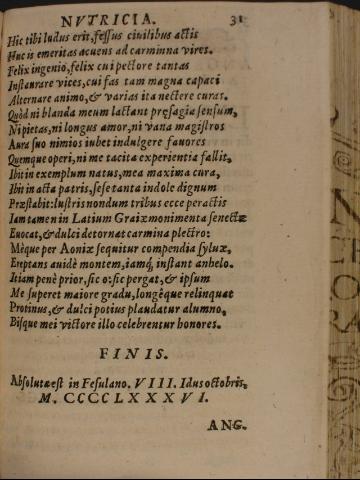 NVTRICIA. 31
Hic tibi ludus erit, fessus ciuilibus actis
Huc is emeritas acuens ad carminna vires.
Felix ingenio, felix cui pectore tantas
Instaurare vices, cui fas tam magna capaci
Alternare animo, & varias ita nectere curas.
Quòd ni blanda meum lactant præsagia sensum,
Ni pietas, ni longus amor, ni vana magistros
Aura suo nimios iubet indulgere fauores
Quemque operi, ni me tacita experientia fallit,
Ibit in exemplum natus, mea maxima cura,
Ibit in acta patris, sese tanta indole dignum
Præstabit: lustris nondum tribus ecce peractis
Iam tamen in Latium Graiæ monimenta senectæ
Euocat, & dulci detornat carmina plectro:
Mèque per Aoniæ sequitur compendia syluæ,
Ereptans auidè montem, iamq́; instant anhelo.
Itiam penè prior, sic o: sic pergat, & ipsum
Me superet maiore gradu, longéque relinquat
Protinus, & dulci potius plaudatur alumno,
Bisque mei victore illo celebrentur honores.
FINIS.
Absoluta est in Fesulano. VIII. Idus octobris,
M. CCCCLXXXVI.
ANG.